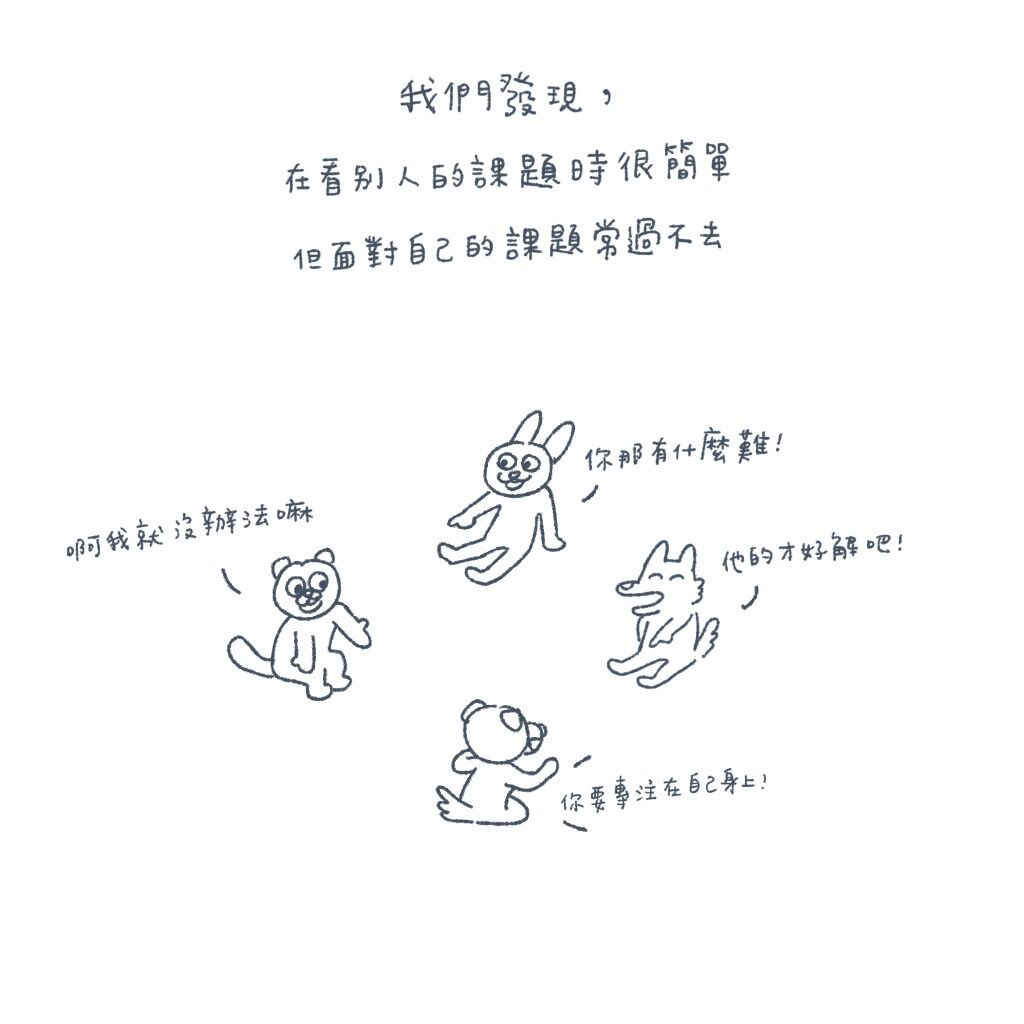 我們發現，
在看別人的課題時很簡單
但面對自己的課題常過不去
你那有什麼難！
啊我就沒辦法嘛
他的才好解吧！
你要專注在自己身上！